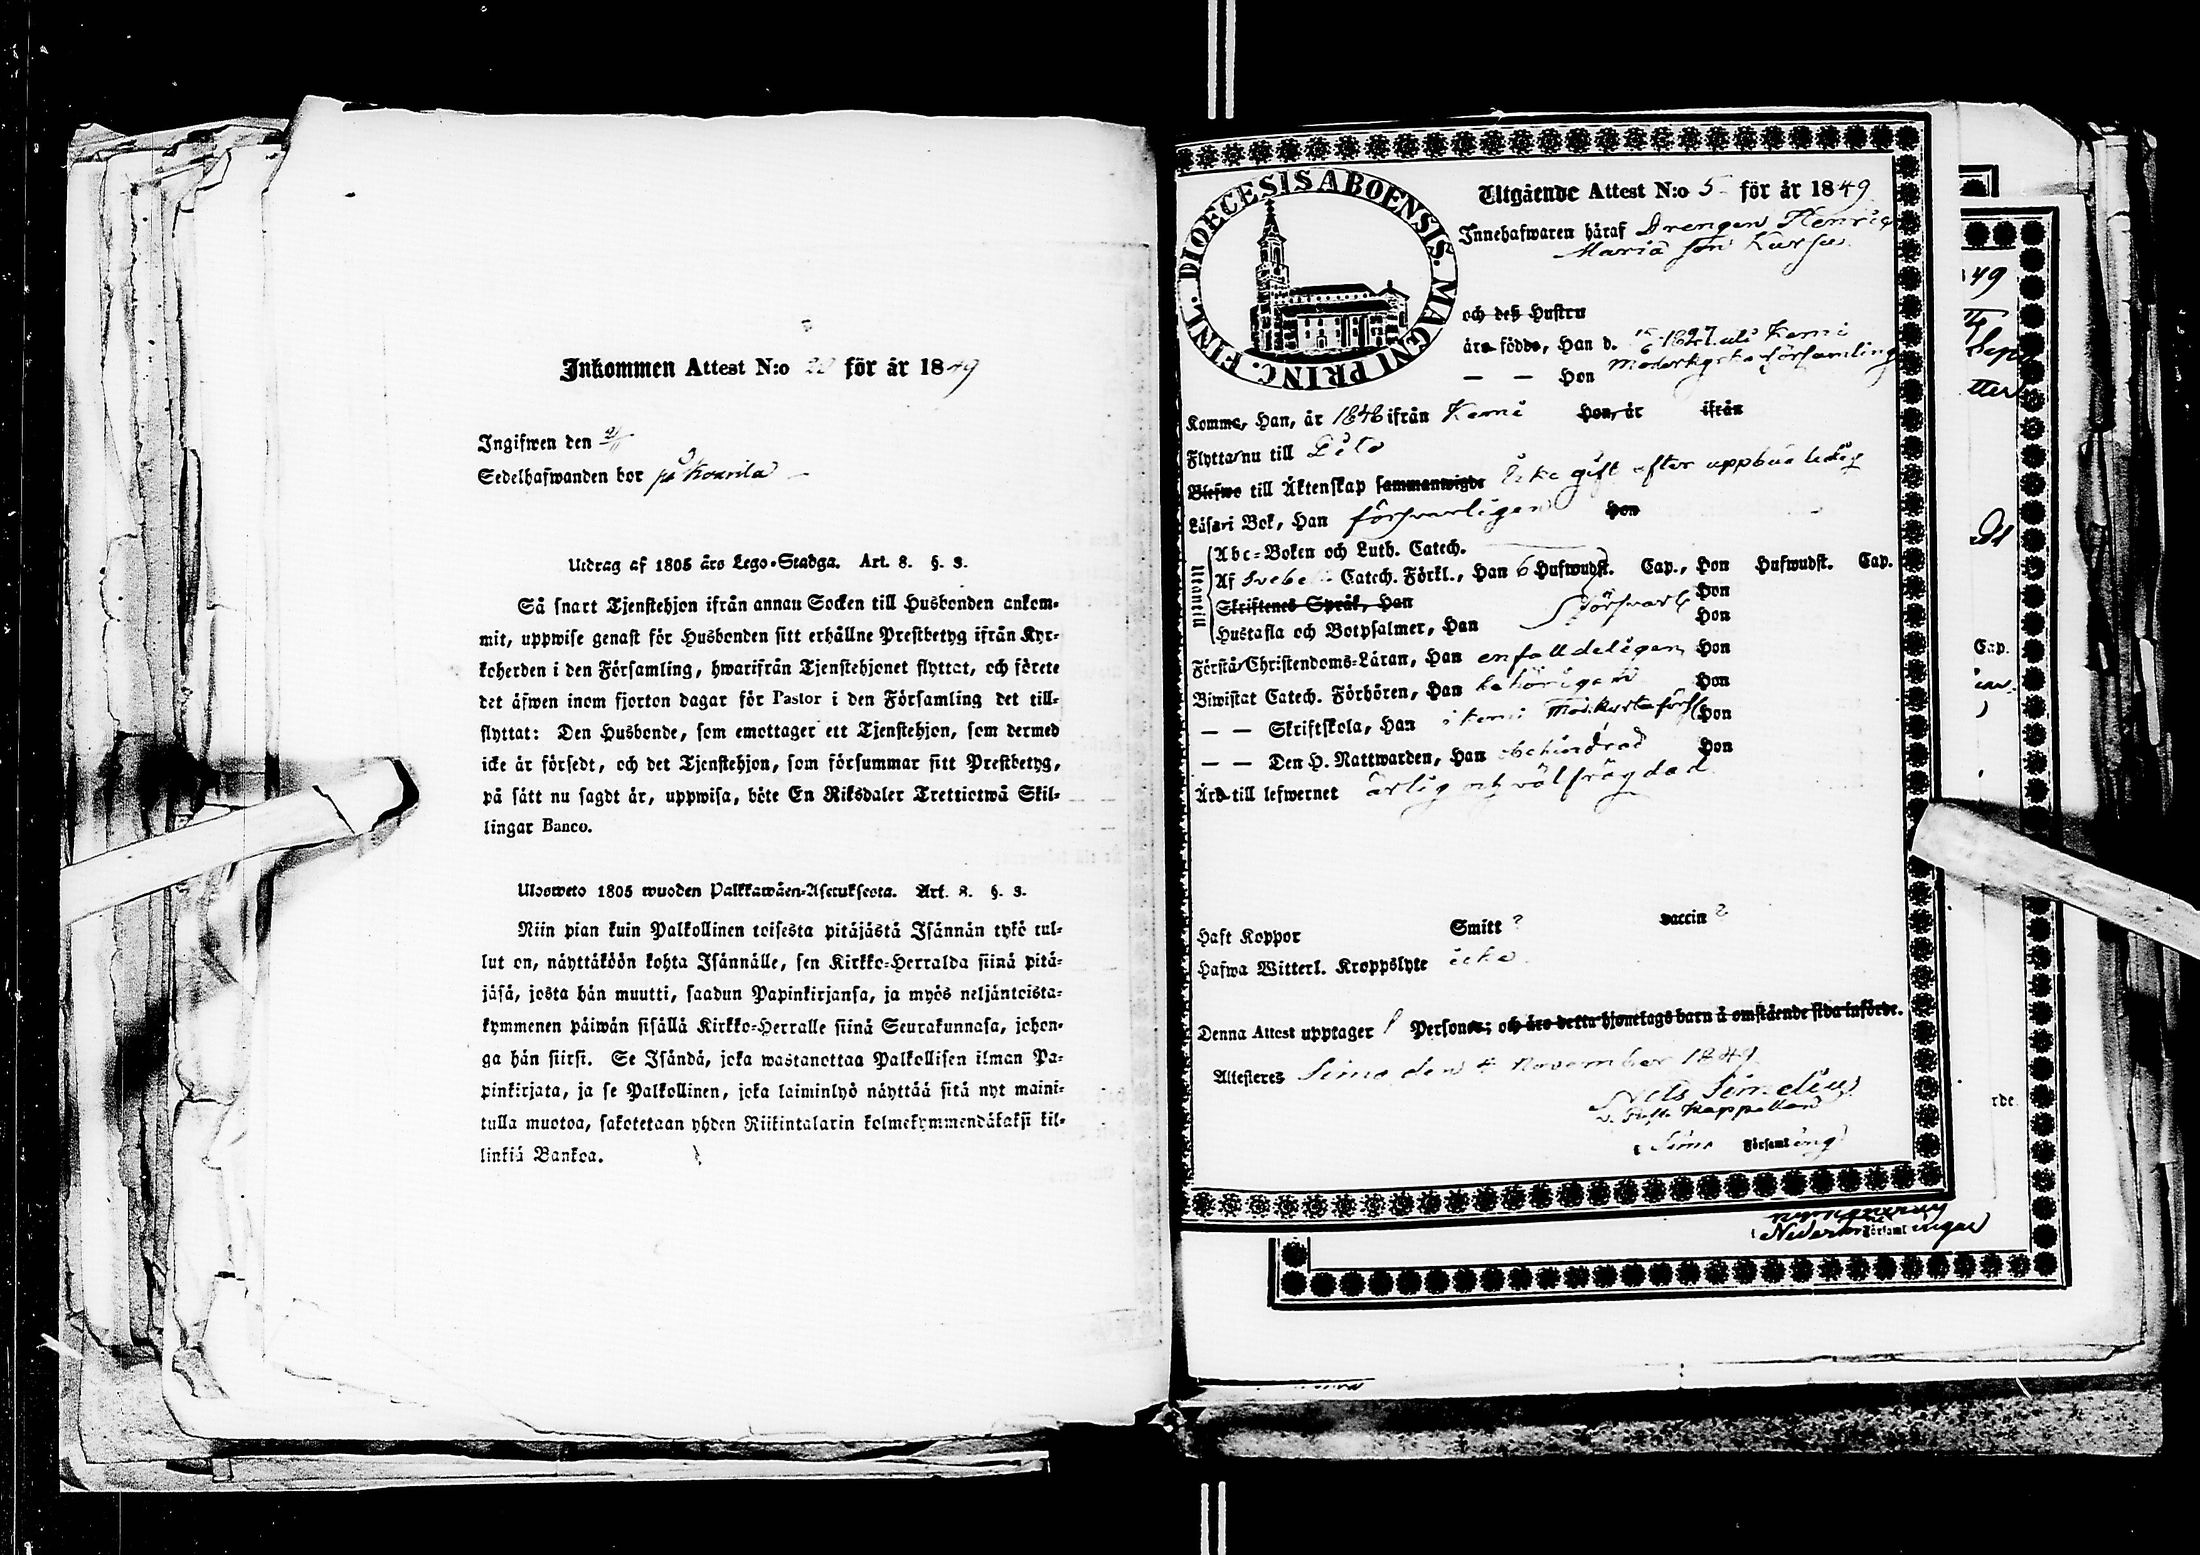 Inkommen Attest N:o för år 1849
Ingifwen den
Sedelhafwanden bor på Kourila
Utdrag af 1805 års Lego-Stadga. Art. 8. §. 3.
Så snart Tjenstehjon ifrån annan Socken till Husbonden ankom-
mit, uppwise genast för Husbonden sitt erhållne Prestbetyg ifrån Kyr-
koherden i den Församling, hwarifrån Tjenstehjonet flyttat, och förete
det äfwen inom fjorton dagar för Pastor i den Församling det till-
flyttat: Den Husbonde, som emottager ett Tjenstehjon, som dermed
icke är försedt, och det Tjenstehjon, som försummar sitt Prestbetyg,
på sätt nu sagdt är, uppwisa, böte En Riksdaler Trettiotwå Skil-
lingar Banco.
Ulosweto 1805 wuoden Palkkawäen-Asetuksesta. Art. 8. §. 3.
Niin pian kuin Palkollinen toisesta pitäjästä Isännän tykö tul-
lut on, näyttäköön kohta Isännälle, sen Kirkko-Herralda siinä pitä-
jäsä, josta hän muutti, saadun Papinkirjansa, ja myös neljäntoista-
kymmenen päiwän sisällä Kirkko-Herralle siinä Seurakunnasa, johon-
ga hän siirsi. Se Isändä, joka wastanottaa Palkollisen ilman Pa-
pinkirjata, ja se Palkollinen, joka laiminlyö näyttää sitä nyt maini-
tulla muotoa, sakotetaan yhden Riikintalarin kolmekymmendäkaksi kil-
linkiä Bankoa.
DIOECESIS ABOENSIS. MAGNI PRINC. FINL.
Utgående Attest N:o 5 för år 1849
Innehafwaren häraf Drengen Henric
Maria son
och deß Hustru
äro födde, Han d. 1827 uti Kemi
Moderkyrko församling
— — Hon
Komme, Han, år 1848 ifrån Kemi Hon, år ifrån
Flytta nu till
Blefwe till Äktenskap sammanwigde Icke gift efter uppbua ledig
Läsa i Bok, Han försvarligen Hon
Utantill
Abc-Boken och Luth. Catech.
Af Svebe Catech. Förkl., Han 6 Hufwudst. Cap., Hon Hufwudst. Cap.
Skriftenes Språk, Han Hon
Hustafla och Botpsalmer, Han försvarl Hon
Förstå Christendoms-Läran, Han enfalldeligen Hon
Biwistat Catech. Förhören, Han behörigen Hon
— — Skriftskola, Han i Kemi Hon
— — Den H. Nattwarden, Han obehindrad Hon
Äro till lefwernet ärlig och välfrägdad
Haft Koppor Smitt ? vaccin ?
Hafwa Witterl. Kroppslyte icke
Denna Attest upptager 1 Personer; och äro detta hjonelags barn å omstående sida införde.
Attesteres Simo den 4 November 1849
Nils Simelius
Kappellan
i Simo Församling
49
Cap.
rde.
Församl